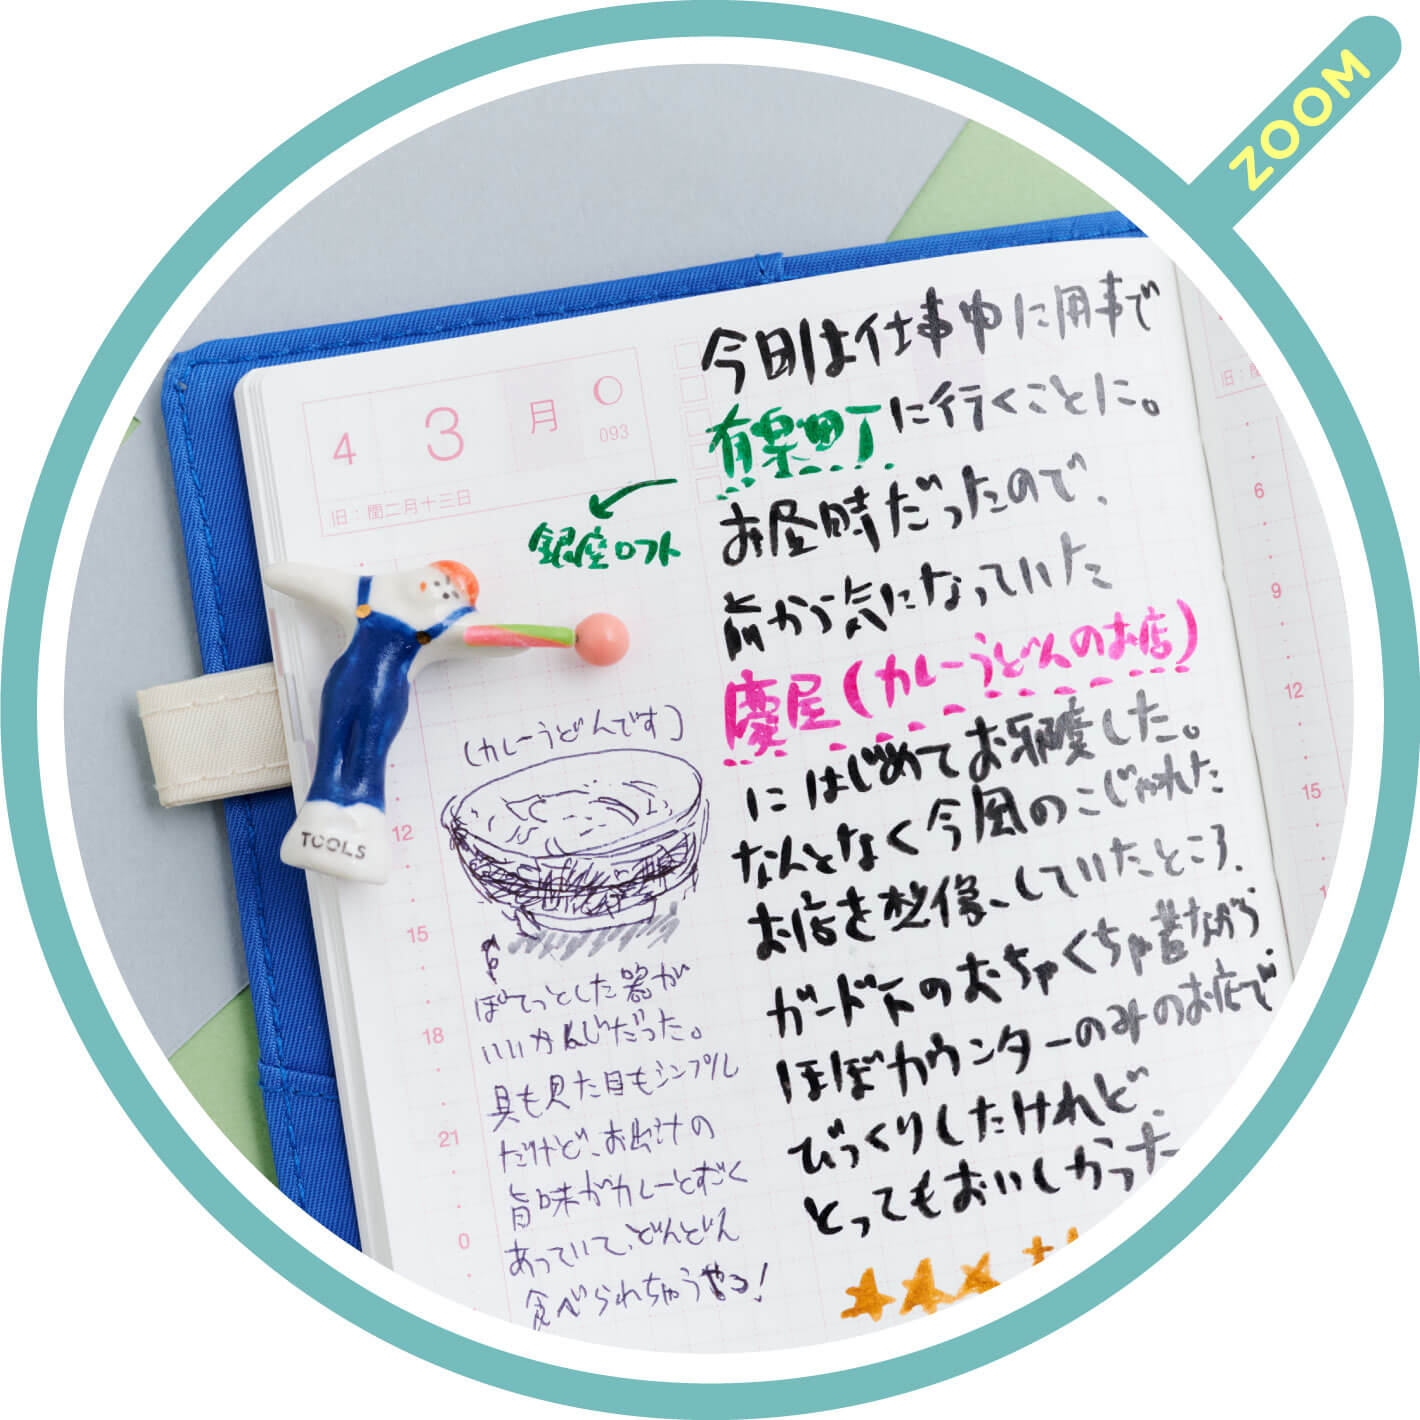 ZOOM
4 3 月
093
旧：閏二月十三日
今日は仕事中に用事で
有楽町に行くことに。
銀座ロフト
お昼時だったので、
前から気になっていた
慶屋(カレーうどんのお店)
にはじめてお邪魔した。
なんとなく今風のこじゃれた
お店を想像していたところ、
ガード下のめちゃくちゃ昔ながら
ほぼカウンターのみのお店で
びっくりしたけれど、
とってもおいしかった
(カレーうどんです)
ぽてっとした器が
いいかんじだった。
具も見た目もシンプル
だけど、お出汁の
旨味がカレーとすごく
あっていて、どんどん
食べられちゃうやつ!
TOOLS
12
15
18
21
0
旧：閏
6
9
12
15